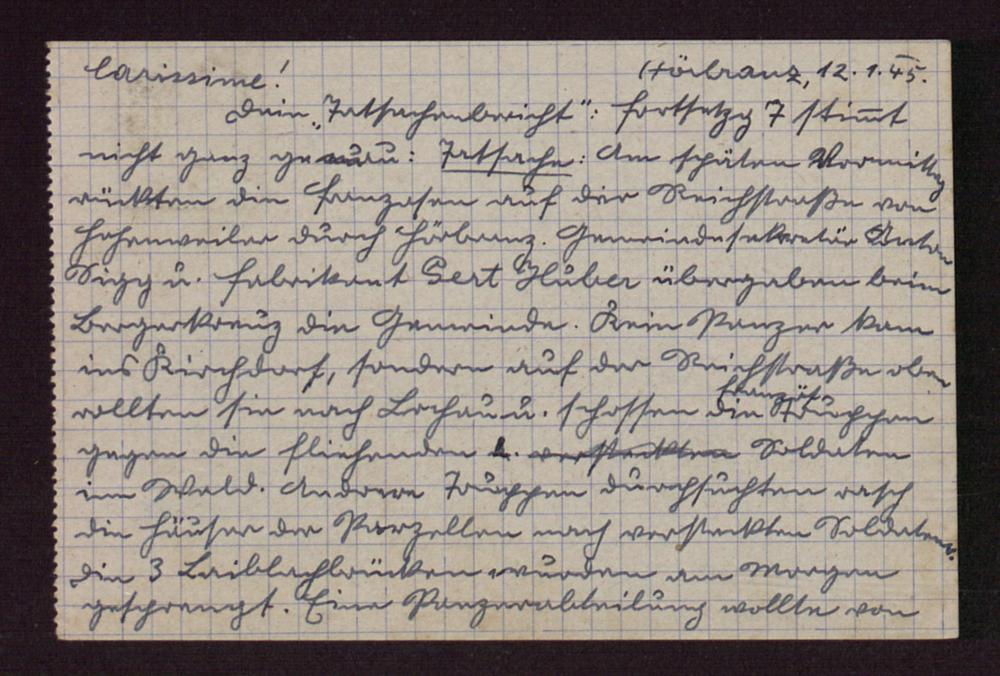 Carissime! Hörbranz, 12. 1. 45.
Dein „Tatsachenbericht": Fortsetzg 7 stimmt
nicht ganz genau: Tatsache: Am späten Vormittag
rückten die Franzosen auf der Reichstraße von
Hohenweiler durch Hörbranz. Gemeindesekretär Anton
Sigg u. Fabrikant Gert Huber übergaben beim
Bergerkreuz die Gemeinde. Kein Panzer kam
ins Kirchdorf, sondern auf der Reichstraße oben
rollten sie nach Lochau u. schossen die französ. Truppen
gegen die fliehenden u. versteckten Soldaten
im Wald. Andere Truppen durchsuchten rasch
die Häuser der Parzellen nach versteckten Soldaten.
Die 3 Laiblachbrücken wurden am Morgen
gesprengt. Eine Panzerabteilung wollte von